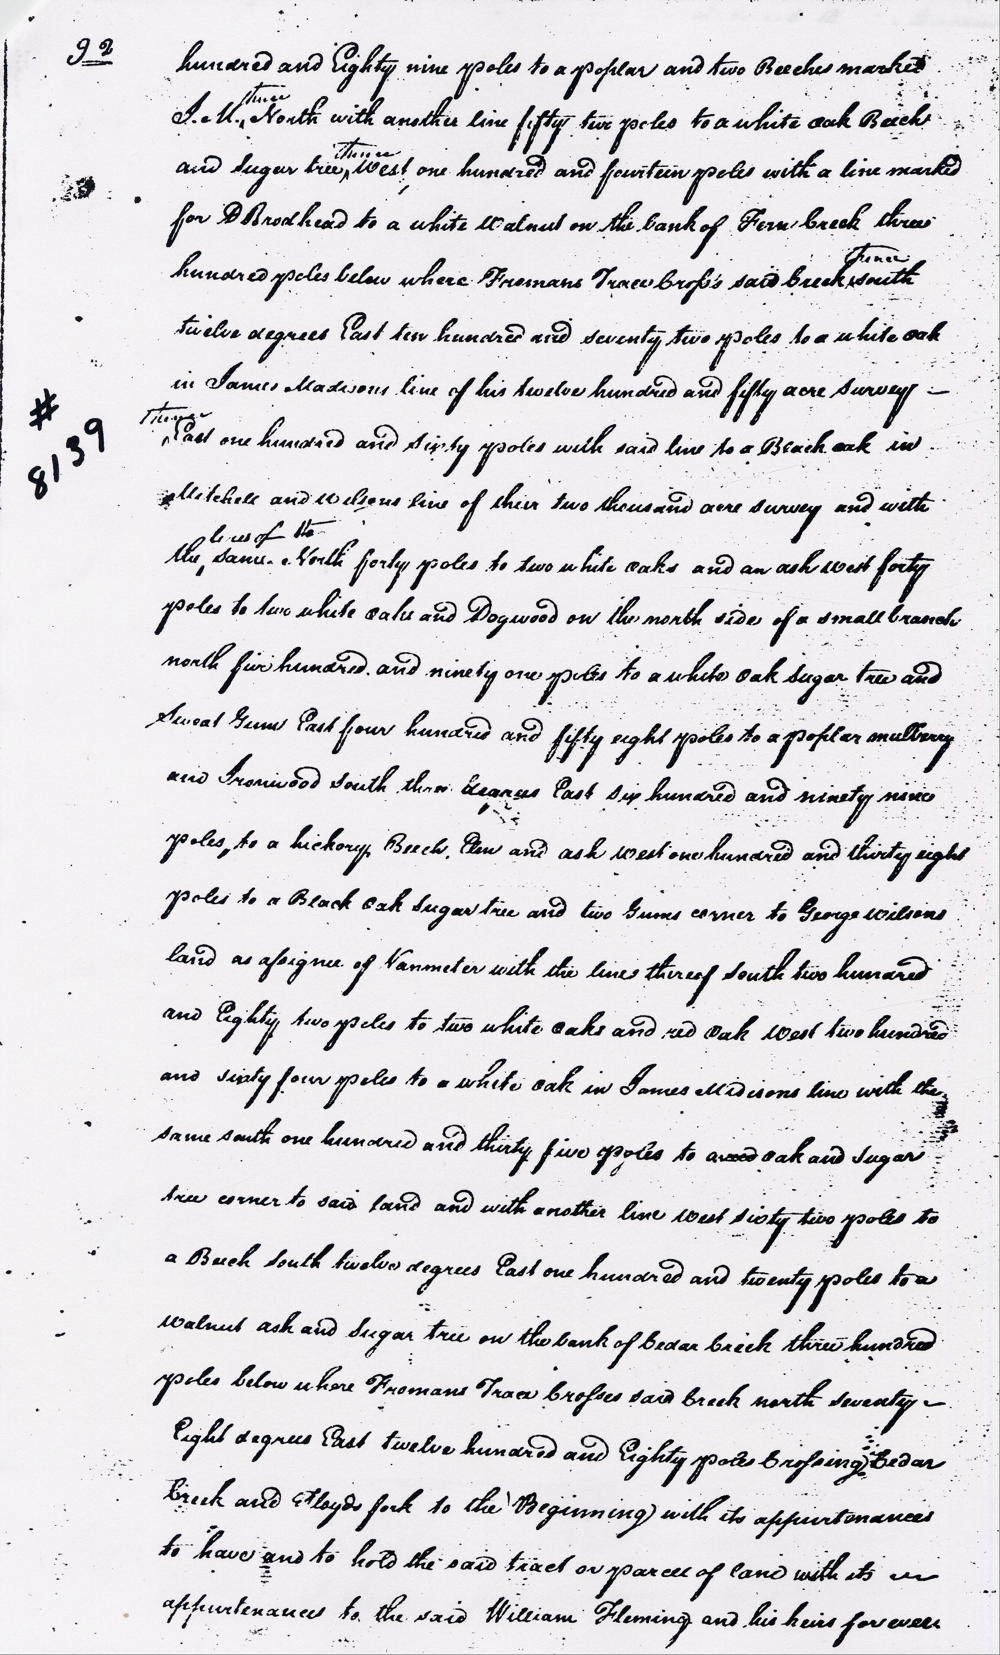 92
hundred and Eighty nine poles to a poplar and two Beeches market
J. M., thence North with another line fifty two poles to a white oak Beech
and Sugar tree, thence West, one hundred and fourteen poles with a line marked
for D Brodhead to a white Walnut on the bank of Fern Creek three
hundred poles below where Fromans Trace Cross's said Creek, thence south
twelve degrees East ten hundred and seventy two poles to a white oak
in James Madisons line of his twelve hundred and fifty acre survey —
Thence East one hundred and sixty poles with said line to a Black oak in
# 8139
Mitchell and Wilsons line of their two thousand acre survey and with
the lines of the same. North forty poles to two white oaks and an ash west forty
poles to two white oaks and Dogwood on the north side of a small branch
north five hundred and ninety one poles to a white oak Sugar tree and
Sweat Gum East four hundred and fifty eight poles to a poplar mulberry
and Ironwood South three degrees East six hundred and ninety nine
poles, to a hickory, Beech, Elm and ash West one hundred and thirty eight
poles to a Black oak Sugar tree and two Gums corner to George Wilsons
land as assignee of Vanmeter with the lines thereof South two hundred
and Eighty two poles to two white oaks and red oak West two hundred
and sixty four poles to a white oak in James Midisons line with the
same south one hundred and thirty five poles to a red oak and Sugar
tree corner to said land and with another line West sixty two poles to
a Beech South twelve degrees East one hundred and twenty poles to a
Walnut ash and Sugar tree on the bank of Cedar Creek three hundred
poles below where Fromans Trace Crosses said Creek north seventy —
Eight degrees East twelve hundred and Eighty poles Crossing Cedar
Creek and Floyds fork to the Beginning) with its appurtenances
to have and to hold the said tract or parcel of land with its —
appurtenances to the said William Fleming and his heirs forever